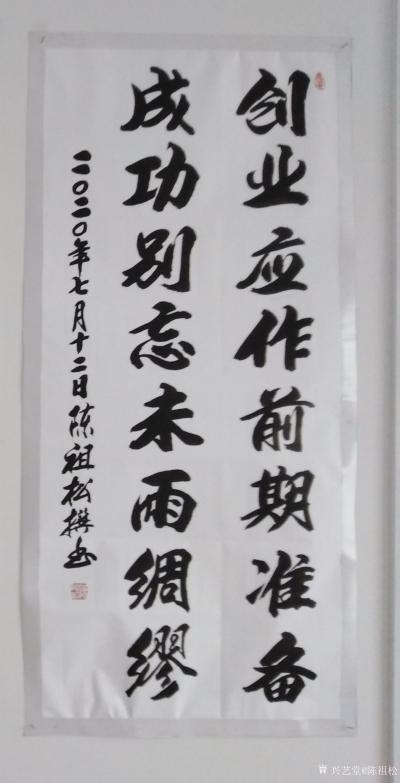 创业应作前期准备
成功别忘未雨绸缪
二〇二〇年七月十二日陈祖松撰书
兴艺堂@陈祖松